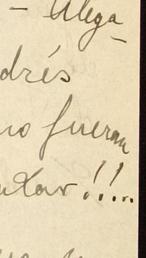 - Alega-
drés
no fueran
tar!!...